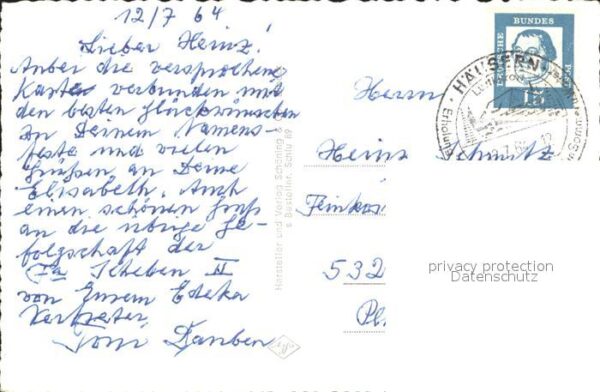 12/7 64
Lieber Heinz!
Anbei die versprochene
Karte verbunden mit
den besten Glückwünschen
zu Deinem Namens-
feste und vielen
Grüßen an Deine
Elisabeth. Auch
einen schönen Gruß
an die übrige Ge-
folgschaft der
Fa Scheben II
von Eurem Edeka
Vertreter
Toni
Hersteller und Verlag Schöning
Bestellnr. Schlu 89
DEUTSCHE BUNDES POST
15
HÄUSERN
Herrn
Heinz Schmitz
Feinkos
532
privacy protection
Datenschutz